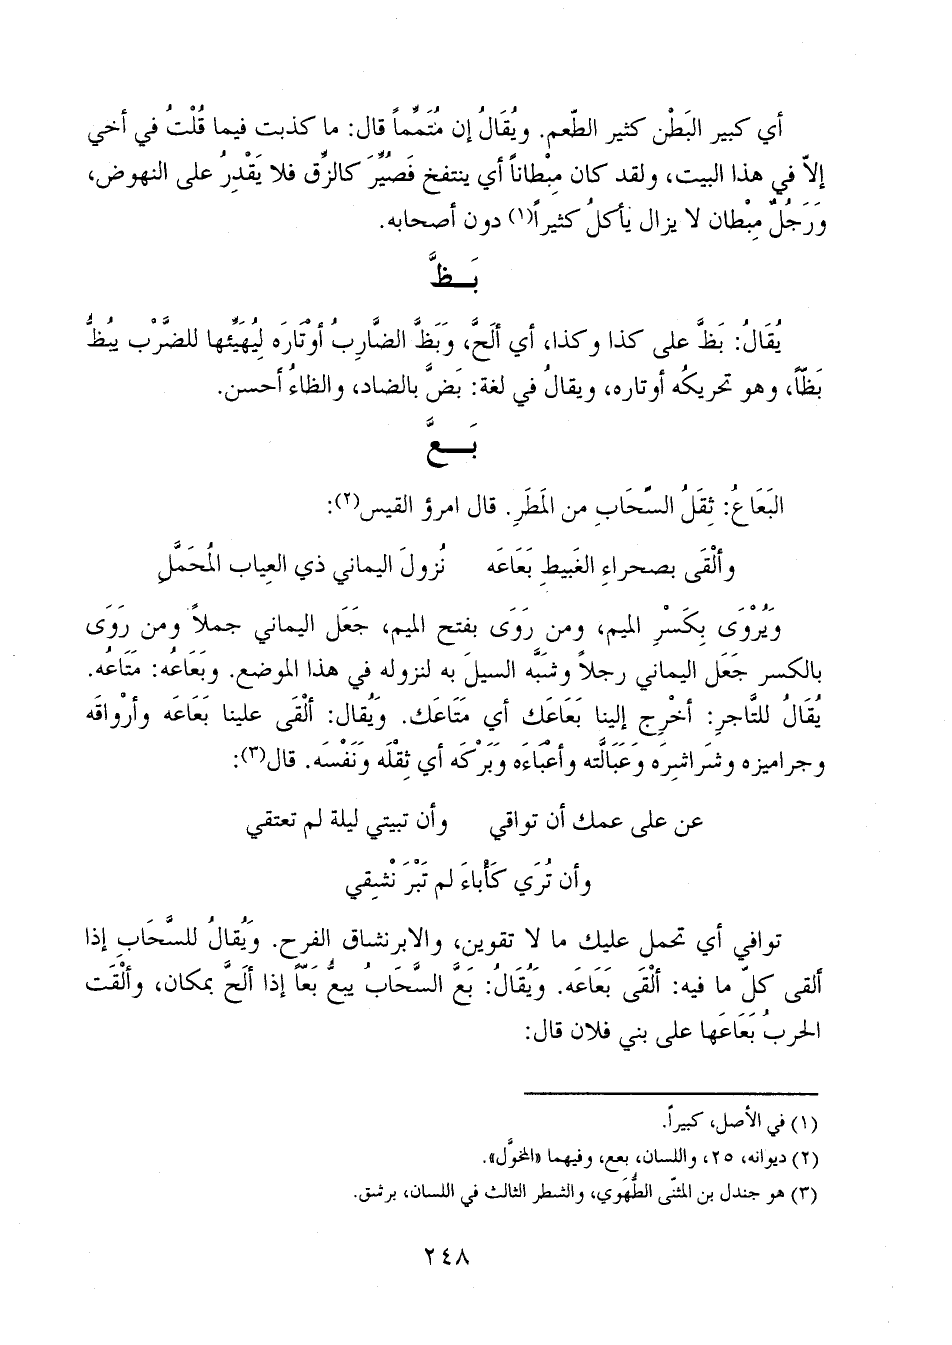 أي كبير البَطْن كثير الطّعم. ويُقَالُ إن مُتَمِّماً قال: ما كذبت فيما قُلْتُ في أخي
إلاّ في هذا البيت، ولقد كان مِبْطاناً أي ينتفخ فَصُيِّرَ كالزِّق فلا يَقْدِرُ على النهوض،
وَرَجُلٌ مِبْطان لا يزال يأكلُ كثيراً(١) دون أصحابه.
بَـظَّ
يُقَالُ: بَظَّ على كذا وكذا، أي ألَحَّ، وَبَظَّ الضَّارِبُ أوْتَارَه لِيُهَيِّئها للضَّرْب يبُظُّ
بَظّاً، وهو تحريكُه أوتاره، ويقالُ في لغة: بَضَّ بالضاد، والظاءُ أحسن.
بَـعَّ
البَعَاعُ: ثِقَلُ السَّحَابِ من المَطَرِ. قال امرؤ القيس(٢):
وألْقَى بصحراءِ الغَبيطِ بَعَاعَه نُزولَ اليماني ذي العِياب المُحَمَّلِ
وَيُرْوَى بِكَسْرِ الميم، ومن رَوَى بفتح الميم، جَعَل اليماني جملاً ومن رَوَى
بالكسر جَعَل اليماني رجلاً وشَبَّه السيلَ به لنزوله في هذا الموضع. وبَعَاعُه: مَتَاعُه.
يُقَالُ للتَّاجرِ: أخْرِج إلينا بَعَاعَك أي مَتَاعَك. وَيُقال: ألْقَى علينا بَعَاعَه وأرْواقَه
وجراميزه وشَراشِرَه وَعَبَالَّته وأعْبَاءَه وَبَرْكَه أي ثِقْلَه وَنَفْسَه. قال(٣):
عن على عمك أن تواقي وأن تبيتي ليلة لم تعتقي
وأن تُرَي كَأْباءَ لم تَبْرَ نْشِقي
توافي أي تحمل عليك ما لا تقوين، والابرنشاق الفرح. وَيُقالُ للسَّحَابِ إذا
ألقى كلّ ما فيه: ألْقَى بَعَاعَه. وَيُقَالُ: بَعَّ السَّحَابُ يبعُّ بَعّاً إذا ألَحَّ بمكان، وألْقَت
الحربُ بَعَاعَها على بني فلان قال:
(١) في الأصل، كبيراً.
(٢) ديوانه، ٢٥، واللسان، بعع، وفيهما «المخوَّل».
(٣) هو جندل بن المثنّى الطُّهَوي، والشطر الثالث في اللسان، برشق.
٢٤٨